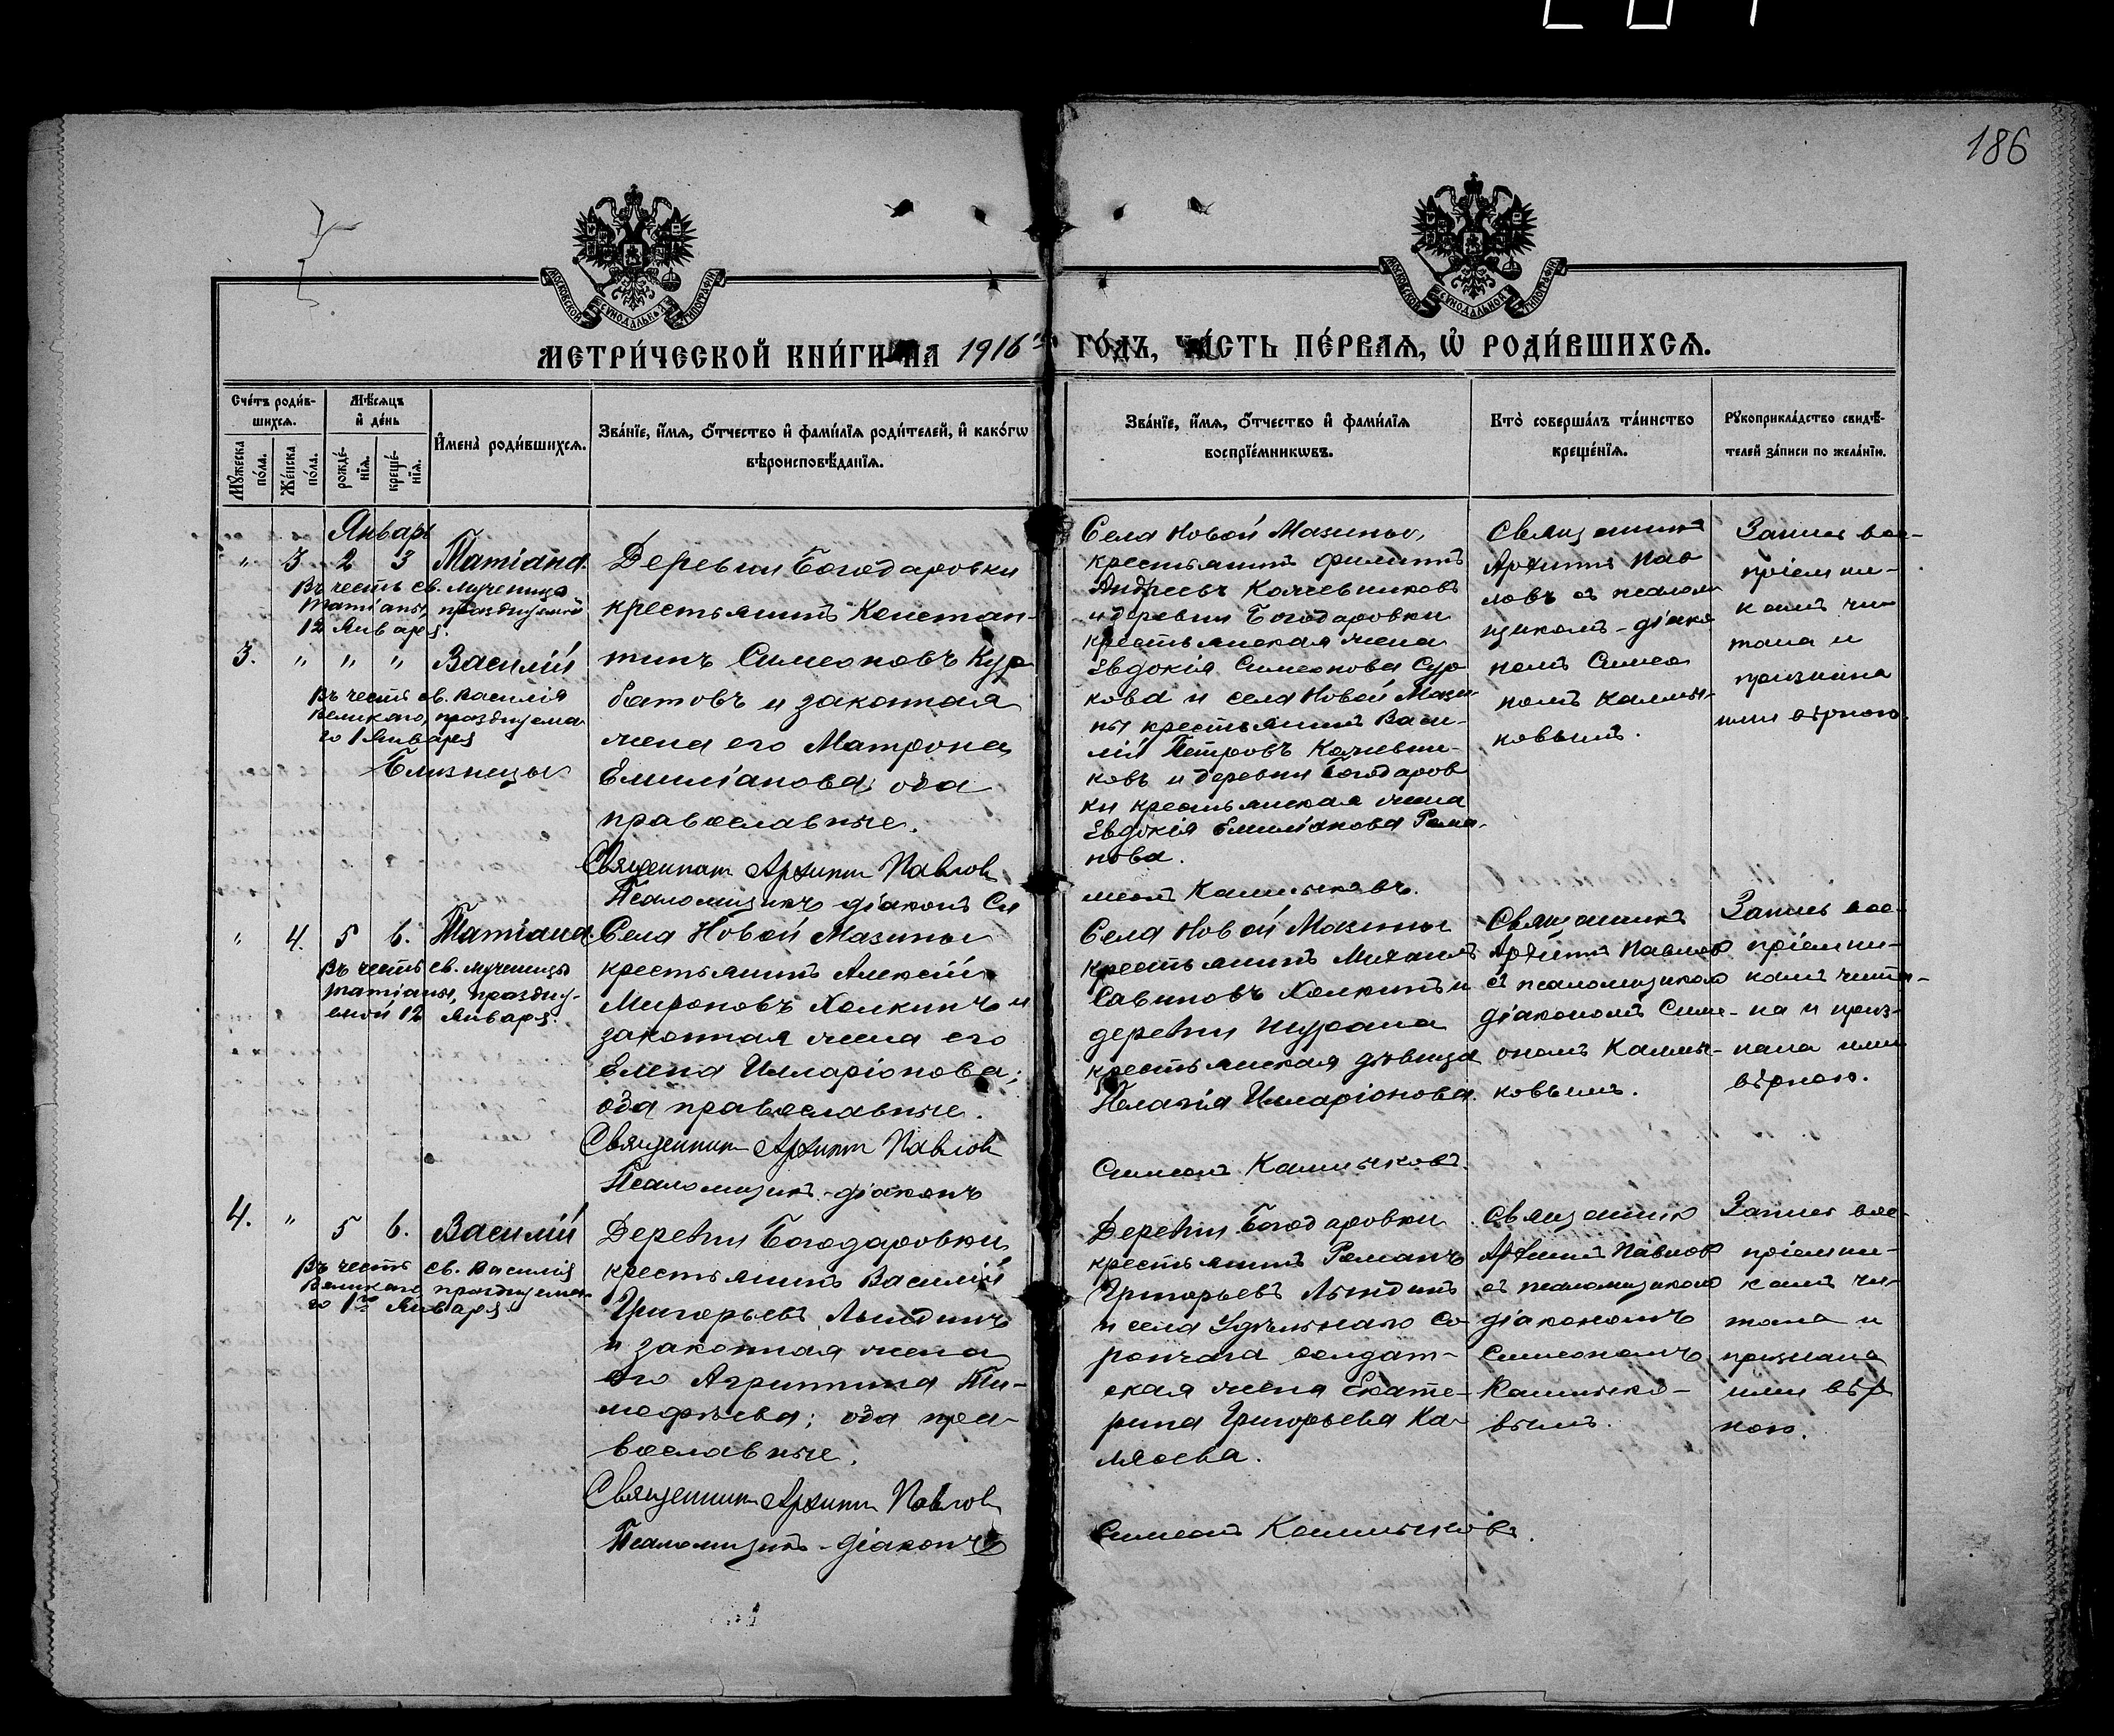 186
МОСКОВСКОЙ СѴНОДАЛЬНОЙ ТИПОГРАФІИ
МОСКОВСКОЙ СѴНОДАЛЬНОЙ ТИПОГРАФІИ
МЕТРИ́ЧЕСКОЙ КНИ́ГИ НА 1916 ГО́ДЪ, ЧА́СТЬ ПЕ́РВАЯ, Ѡ РОДИ́ВШИХСЯ.
Сче́тъ роди́в-
шихся.
Мꙋ́жеска по́ла.
Же́нска по́ла.
Мѣ́сяцъ
и҆ де́нь
рожде́-
нїя.
креще́-
нїя.
И҆мена̀ роди́вшихся.
Зва́нїе, и҆́мя, ѻ҆́тчество и҆ фами́лїя роди́телей, и҆ како́гѡ
вѣроисповѣ́данїя.
Зва́нїе, и҆́мя, ѻ҆́тчество и҆ фами́лїя
воспрїе́мникѡвъ.
Кто̀ соверша́лъ та́инство
креще́нїя.
Рꙋкоприкла́дство свидѣ́-
телей за́писи по жела́нїю.
Январь
" 3 2 3 Татіана
Въ честь св. мученицы
Татіаны, празднуемой
12 Января.
3. " " " Василій
Въ честь св. Василія
Великаго, празднуема-
го 1 Января
Близнецы
Деревни Богодаровки
крестьянинъ Констан-
тинъ Симеоновъ Кур-
батовъ и законная
жена его Матрона
Емиліанова; оба
православные.
Священник Архипп Павлов
Псаломщикъ діаконъ Си
Села Новой Мазины,
крестьянинъ Филиппъ
Андреевъ Кочевниковъ
и деревни Богодаровки
крестьянская жена
Евдокія Симеонова Сур-
кова и села Новой Мази-
ны крестьянинъ Васи-
лій Петровъ Кочевни-
ковъ и деревни Богодаров
ки крестьянская жена
Евдокія Емиліанова Рома-
нова.
меонъ Калмыковъ.
Священникъ
Архиппъ Пав
ловъ съ псалом
щикомъ-діако
номъ Симео
номъ Калмы-
ковымъ.
Запись вос-
пріемни-
камъ чи-
тана и
признана
ими вѣрною.
" 4. 5 6. Татіана
Въ честь св. мученицы
Татіаны, праздну-
емой 12 Января.
Села Новой Мазины
крестьянинъ Алексій
Мироновъ Холкинъ и
законная жена его
Елена Илларіонова;
оба православные.
Священник Архипп Павлов
Псаломщикъ-діаконъ
Села Новой Мазины
крестьянинъ Михаилъ
Савиновъ Холкинъ и
деревни Шурана
крестьянская дѣвица
Пелагія Илларіонова.
Симеонъ Калмыковъ.
Священникъ
Архиппъ Павловъ
съ псаломщикомъ
діакономъ Симе-
ономъ Калмы-
ковымъ.
Запись вос-
пріемни-
камъ чита-
на и приз-
нана ими
вѣрною.
4. " 5 6. Василій
Въ честь св. Василія
Великаго, празднуема-
го 1го Января
Деревни Богодаровки
крестьянинъ Василій
Григорьевъ Лындинъ
и законная жена
его Агриппина Ти-
мофѣева; оба пра-
вославные.
Священник Архипп Павлов
Псаломщикъ-діаконъ
Деревни Богодаровки
крестьянинъ Романъ
Григорьевъ Лындинъ
и села Удѣльнаго Со-
рончага солдат-
ская жена Екате-
рина Григорьева Ка-
мясева.
Симеонъ Калмыковъ.
Священник
Архиппъ Павловъ
съ псаломщикомъ
діакономъ
Симеономъ
Калмыко-
вымъ.
Запись вос-
пріемни-
камъ чи-
тана и
признана
ими вѣр
ною.